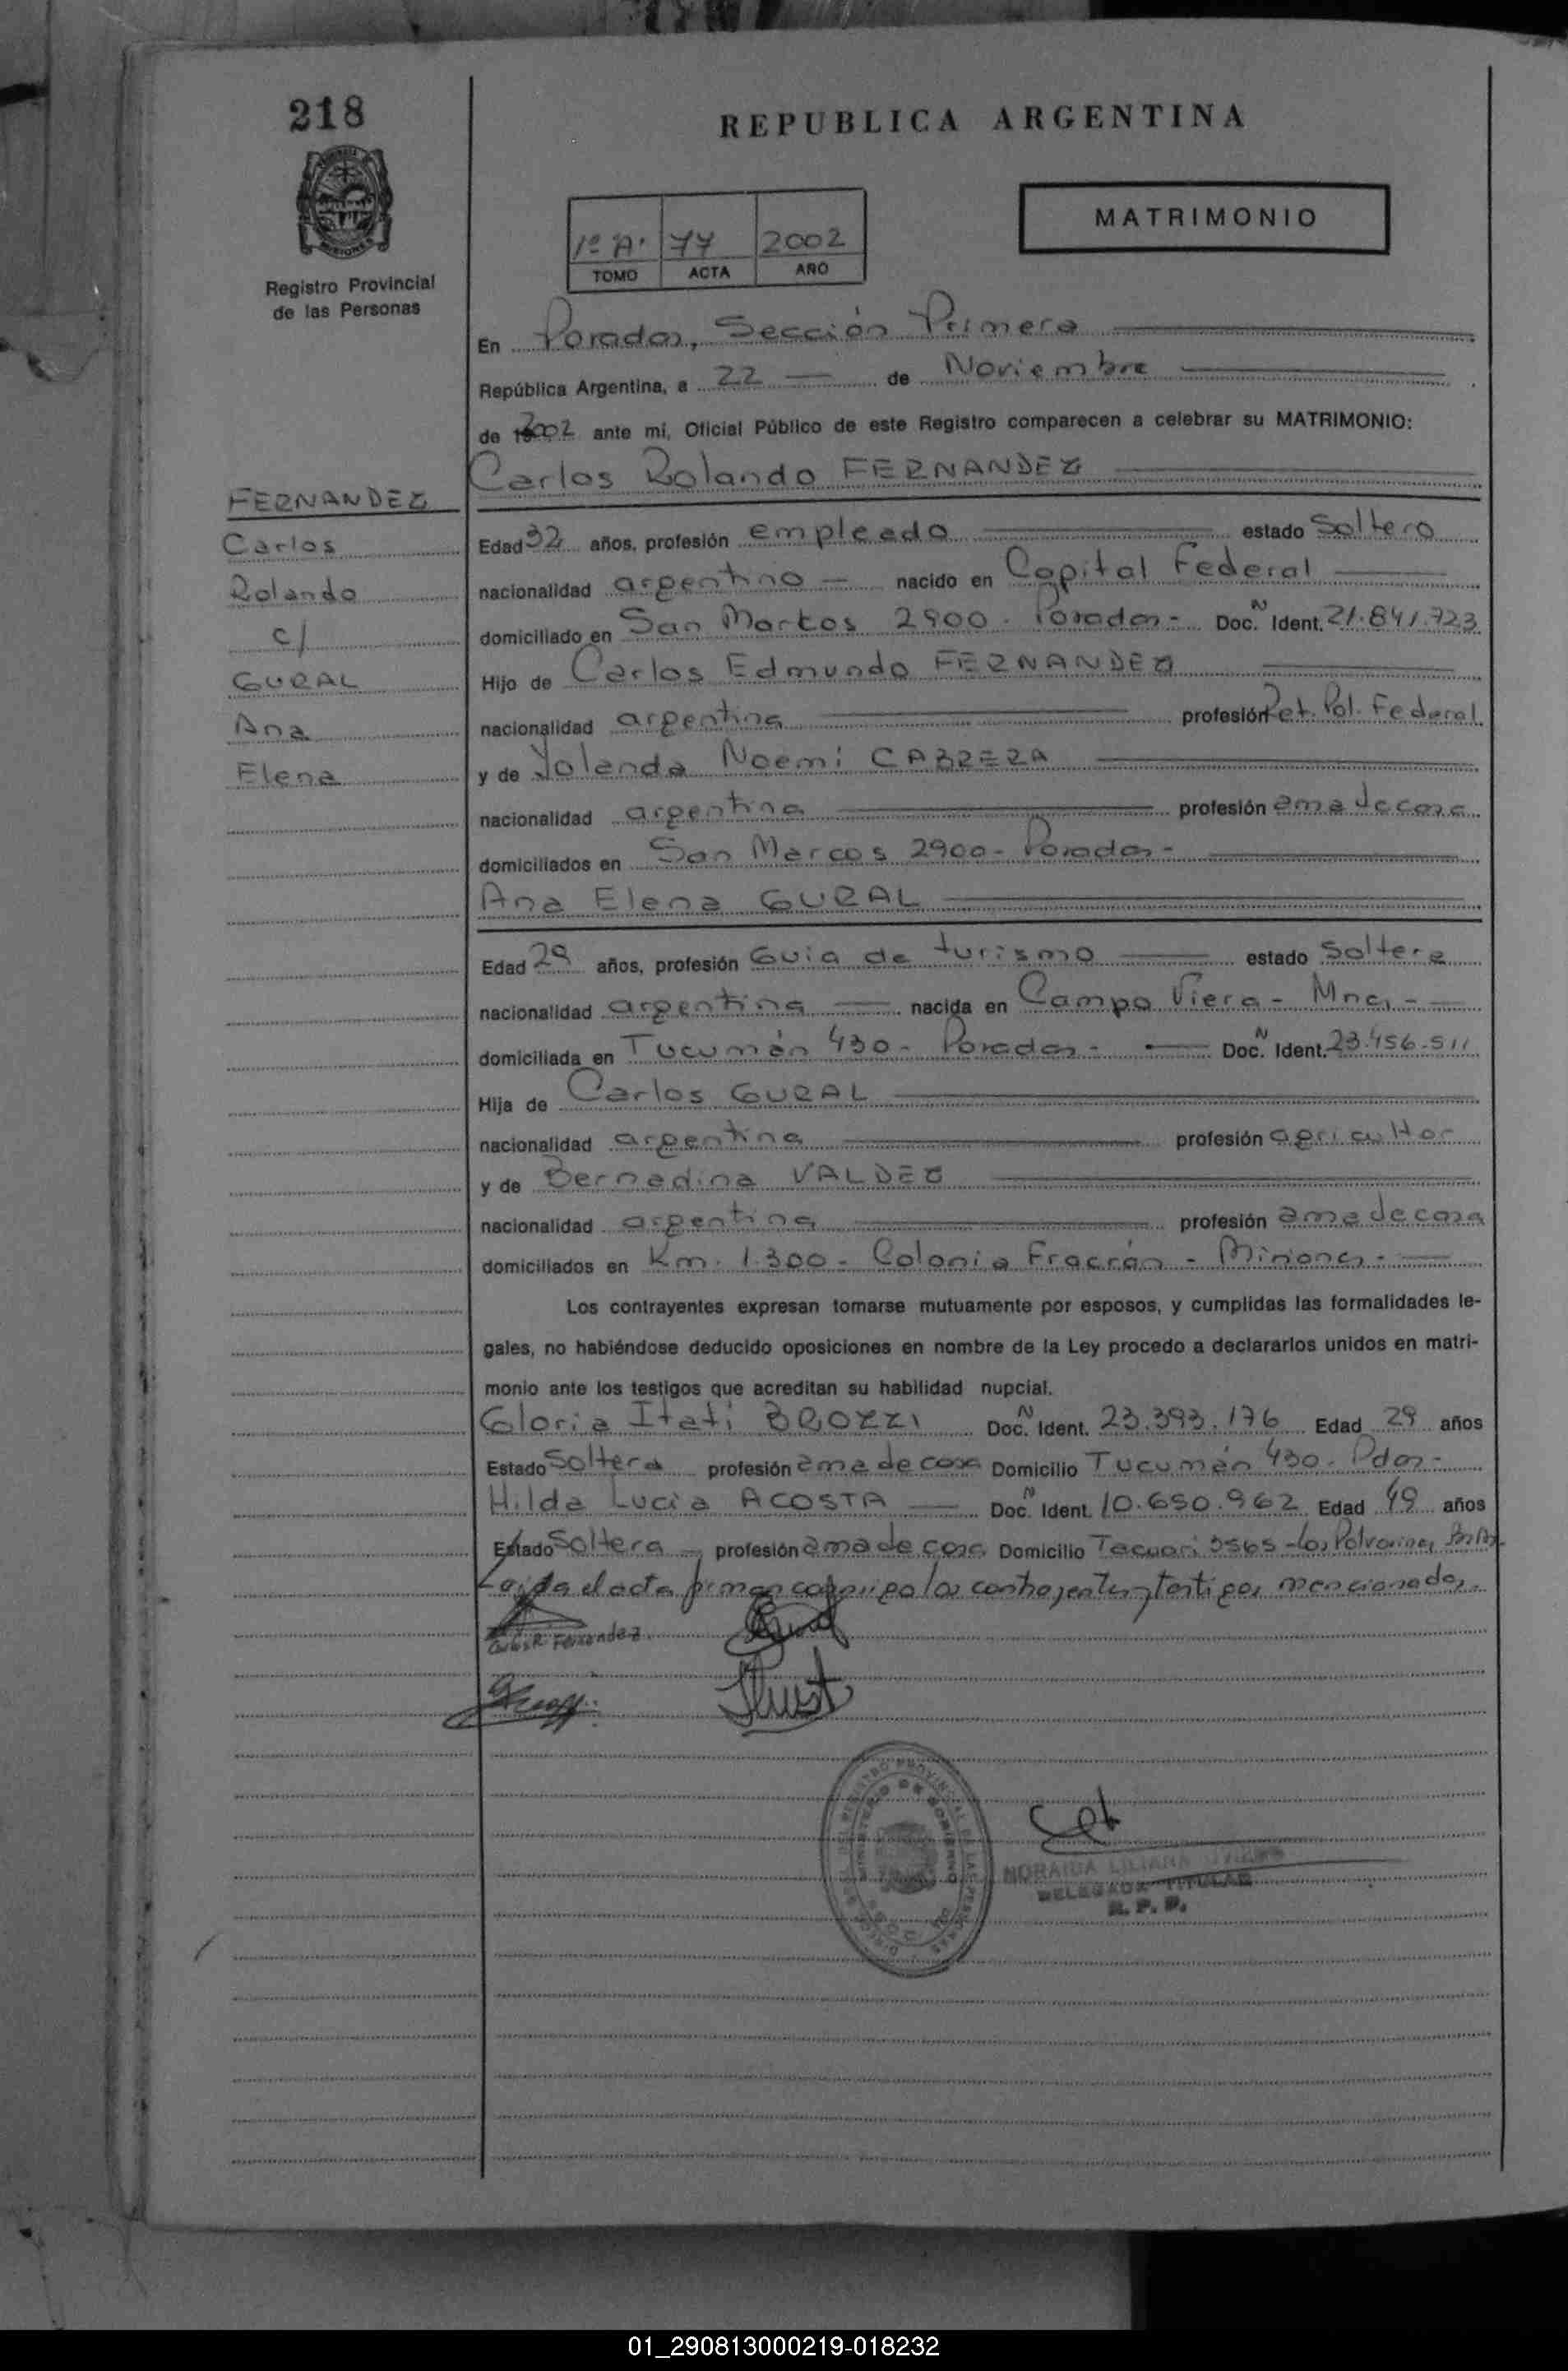 218
REPUBLICA ARGENTINA
MATRIMONIO
1º A. 77 2002
TOMO ACTA AÑO
Registro Provincial
de las Personas
En Posadas, Sección Primera
República Argentina, a 22 de Noviembre
de 2002 ante mi, Oficial Público de este Registro comparecen a celebrar su MATRIMONIO:
Carlos Rolando FERNANDEZ
FERNANDEZ
Carlos
Rolando
c/
GURAL
Ana
Elena
Edad 32 años, profesión empleado estado Soltero
nacionalidad argentino nacido en Capital Federal
domiciliado en San Markos 2900 - Posadas - Doc. N Ident. 21.841.723
Hijo de Carlos Edmundo FERNANDEZ
nacionalidad argentina profesión Ret. Pol. Federal
y de Yolanda Noemi CABRERA
nacionalidad argentina profesión ama de casa
domiciliados en San Marcos 2900 - Posadas -
Ana Elena GURAL
Edad 29 años, profesión Guia de turismo estado Soltera
nacionalidad argentina nacida en Campo Viera - Mnes -
domiciliada en Tucumán 430 - Posadas - Doc. N Ident. 23.456.511
Hija de Carlos GURAL
nacionalidad argentina profesión agricultor
y de Bernadina VALDEZ
nacionalidad argentina profesión ama de casa
domiciliados en Km. 1.300 - Colonia Fracrán - Misiones -
Los contrayentes expresan tomarse mutuamente por esposos, y cumplidas las formalidades le-
gales, no habiéndose deducido oposiciones en nombre de la Ley procedo a declararlos unidos en matri-
monio ante los testigos que acreditan su habilidad nupcial.
Gloria Itati BROZZI Doc. N Ident. 23.393.176 Edad 29 años
Estado Soltera profesión ama de casa Domicilio Tucumán 430 - Pdas -
Hilda Lucia ACOSTA Doc. N Ident. 10.650.962 Edad 49 años
Estado Soltera profesión ama de casa Domicilio Tacuari 3565 - Los Polvorines, Bs As -
Leida el acta firman conmigo los contrayentes y testigos mencionados.
Carlos R. Fernandez
REGISTRO PROVINCIAL DE LAS PERSONAS
MINISTERIO DE GOBIERNO
NORAIDA LILIANA
DELEGADA TITULAR
R. P. P.
01_290813000219-018232